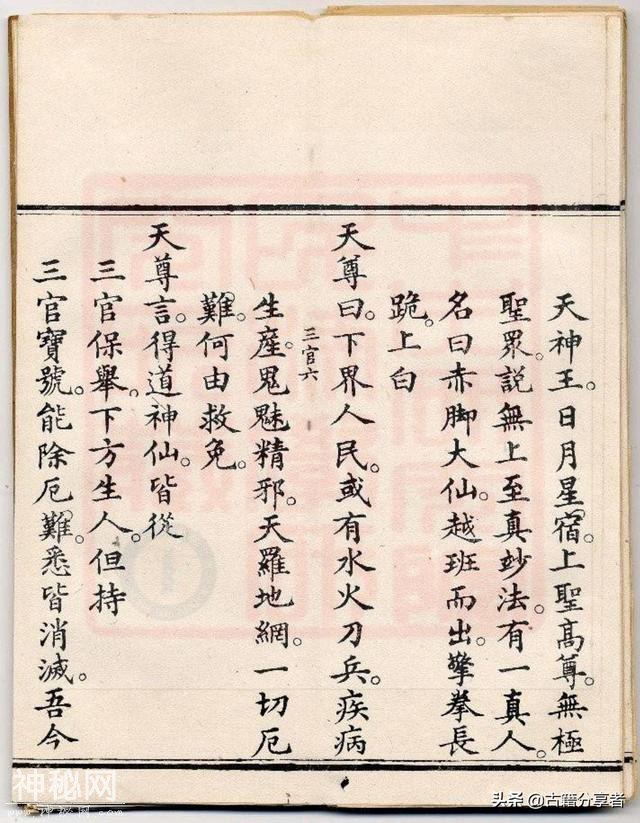 天神王。日月星宿。上聖高尊。無極
聖眾。說無上至真妙法。有一真人。
名曰赤脚大仙。越班而出。擎拳長
跪。上白
天尊曰。下界人民。或有水火刀兵。疾病
三官六
生產。鬼魅精邪。天羅地網。一切厄
難。何由救免。
天尊言。得道神仙。皆從
三官保舉。下方生人。但持
三官寶號。能除厄難。悉皆消滅。吾今
神秘网
头条 @古籍分享者